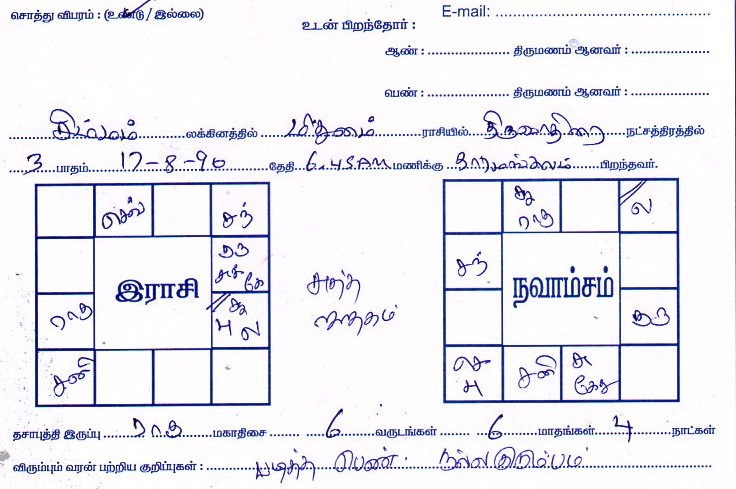 சொத்து விபரம் : (உண்டு / இல்லை)
E-mail:
உடன் பிறந்தோர் :
ஆண் : திருமணம் ஆனவர் :
பெண் : திருமணம் ஆனவர் :
சிம்மம் லக்கினத்தில் மிதுனம் ராசியில் திருவாதிரை நட்சத்திரத்தில்
3 பாதம் 17-8-90 தேதி 6.45AM மணிக்கு தாரமங்கலம் பிறந்தவர்.
செவ் சந்
குரு சுக் கே
ராகு
சூ பு ல
சனி
இராசி
சுத்த ஜாதகம்
சூ ராகு ல
சந்
குரு
செ பு சனி சு கேது
நவாம்சம்
தசாபுத்தி இருப்பு ராகு மகாதிசை 6 வருடங்கள் 6 மாதங்கள் 4 நாட்கள்
விரும்பும் வரன் பற்றிய குறிப்புகள் : படித்த பெண். நல்ல குடும்பம்